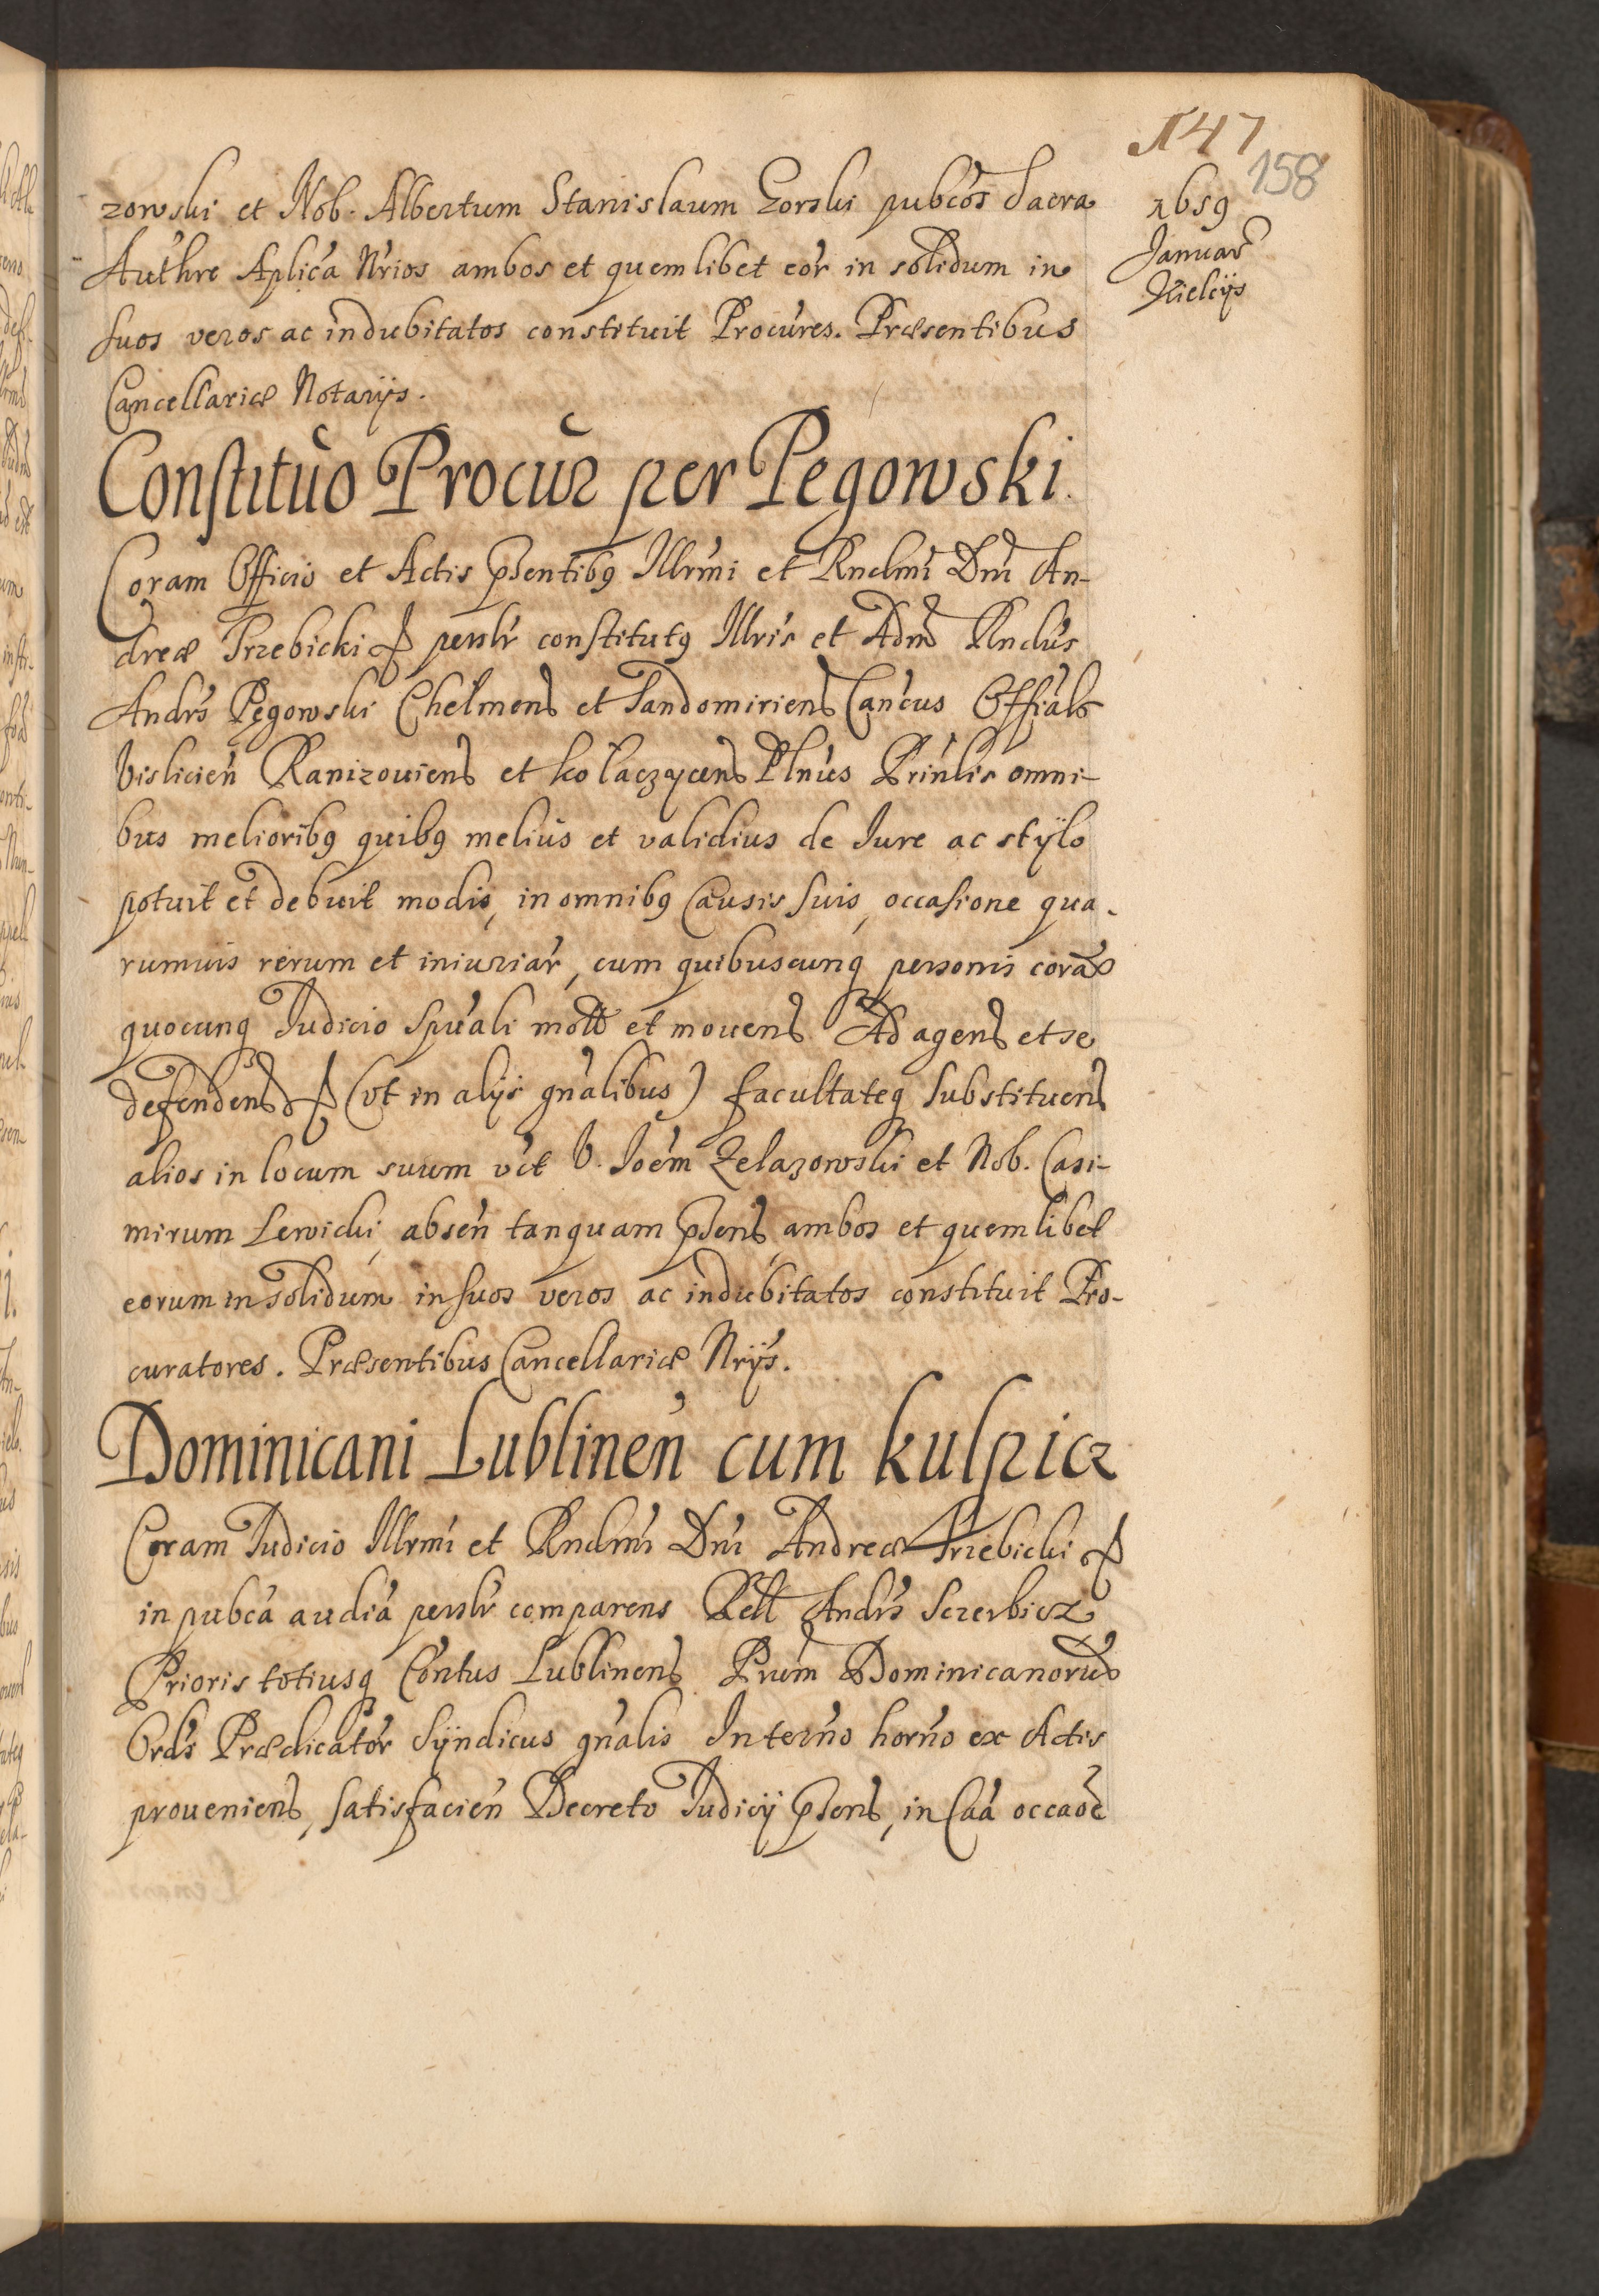 147
158
1659
Januar
Kielcijs
zowski et Nob. Albertum Stanislaum Gorski pubcos Sacra
Authre Aplica Nrios ambos et quemlibet eor in solidum in
suos veros ac indubitatos constituit Procures. Præsentibus
Cancellariæ Notarijs.
Constituo Procur per Pegowski.
Coram Officio et Actis psentibq Illrmi et Rndmi Dni An-
dreæ Trzebicki & psnlr constitutq Illris et Adm Rndus
Andrs Pęgowski Chelmens et Sandomiriens Cancus Offials
Vislicien Ranizouiens et Kołaczycens Plnus Prinlis omni-
bus melioribq quibq melius et validius de Jure ac stÿlo
potuit et debuit modis, in omnibq Causis suis, occasione qua-
rumuis rerum et iniuriar, cum quibuscunq personis cora
quocunq Judicio Spuali mots et mouens Ad agens et se
defendens & (vt in alijs gnalibus) facultateq substituens
alios in locum suum vit V. Joem Zelazowski et Nob. Casi-
mirum Lewicki, absen tanquam psens, ambos et quemlibet
eorum in solidum in suos veros ac indubitatos constituit Pro-
curatores. Præsentibus Cancellariæ Nrijs.
Dominicani Lublinen cum Kulpicz
Coram Judicio Illrmi et Rndmi Dni Andreæ Trzebicki &
in pubca audia psnlr comparens Rell Andrs Sczerbicz
Prioris totiusq Contus Lublinens Prum Dominicanoru
Ords Prædicator Sÿndicus gnalis Interno horno ex Actis
proueniens, satisfacien Decreto Judicij psens, in Caa occaoe